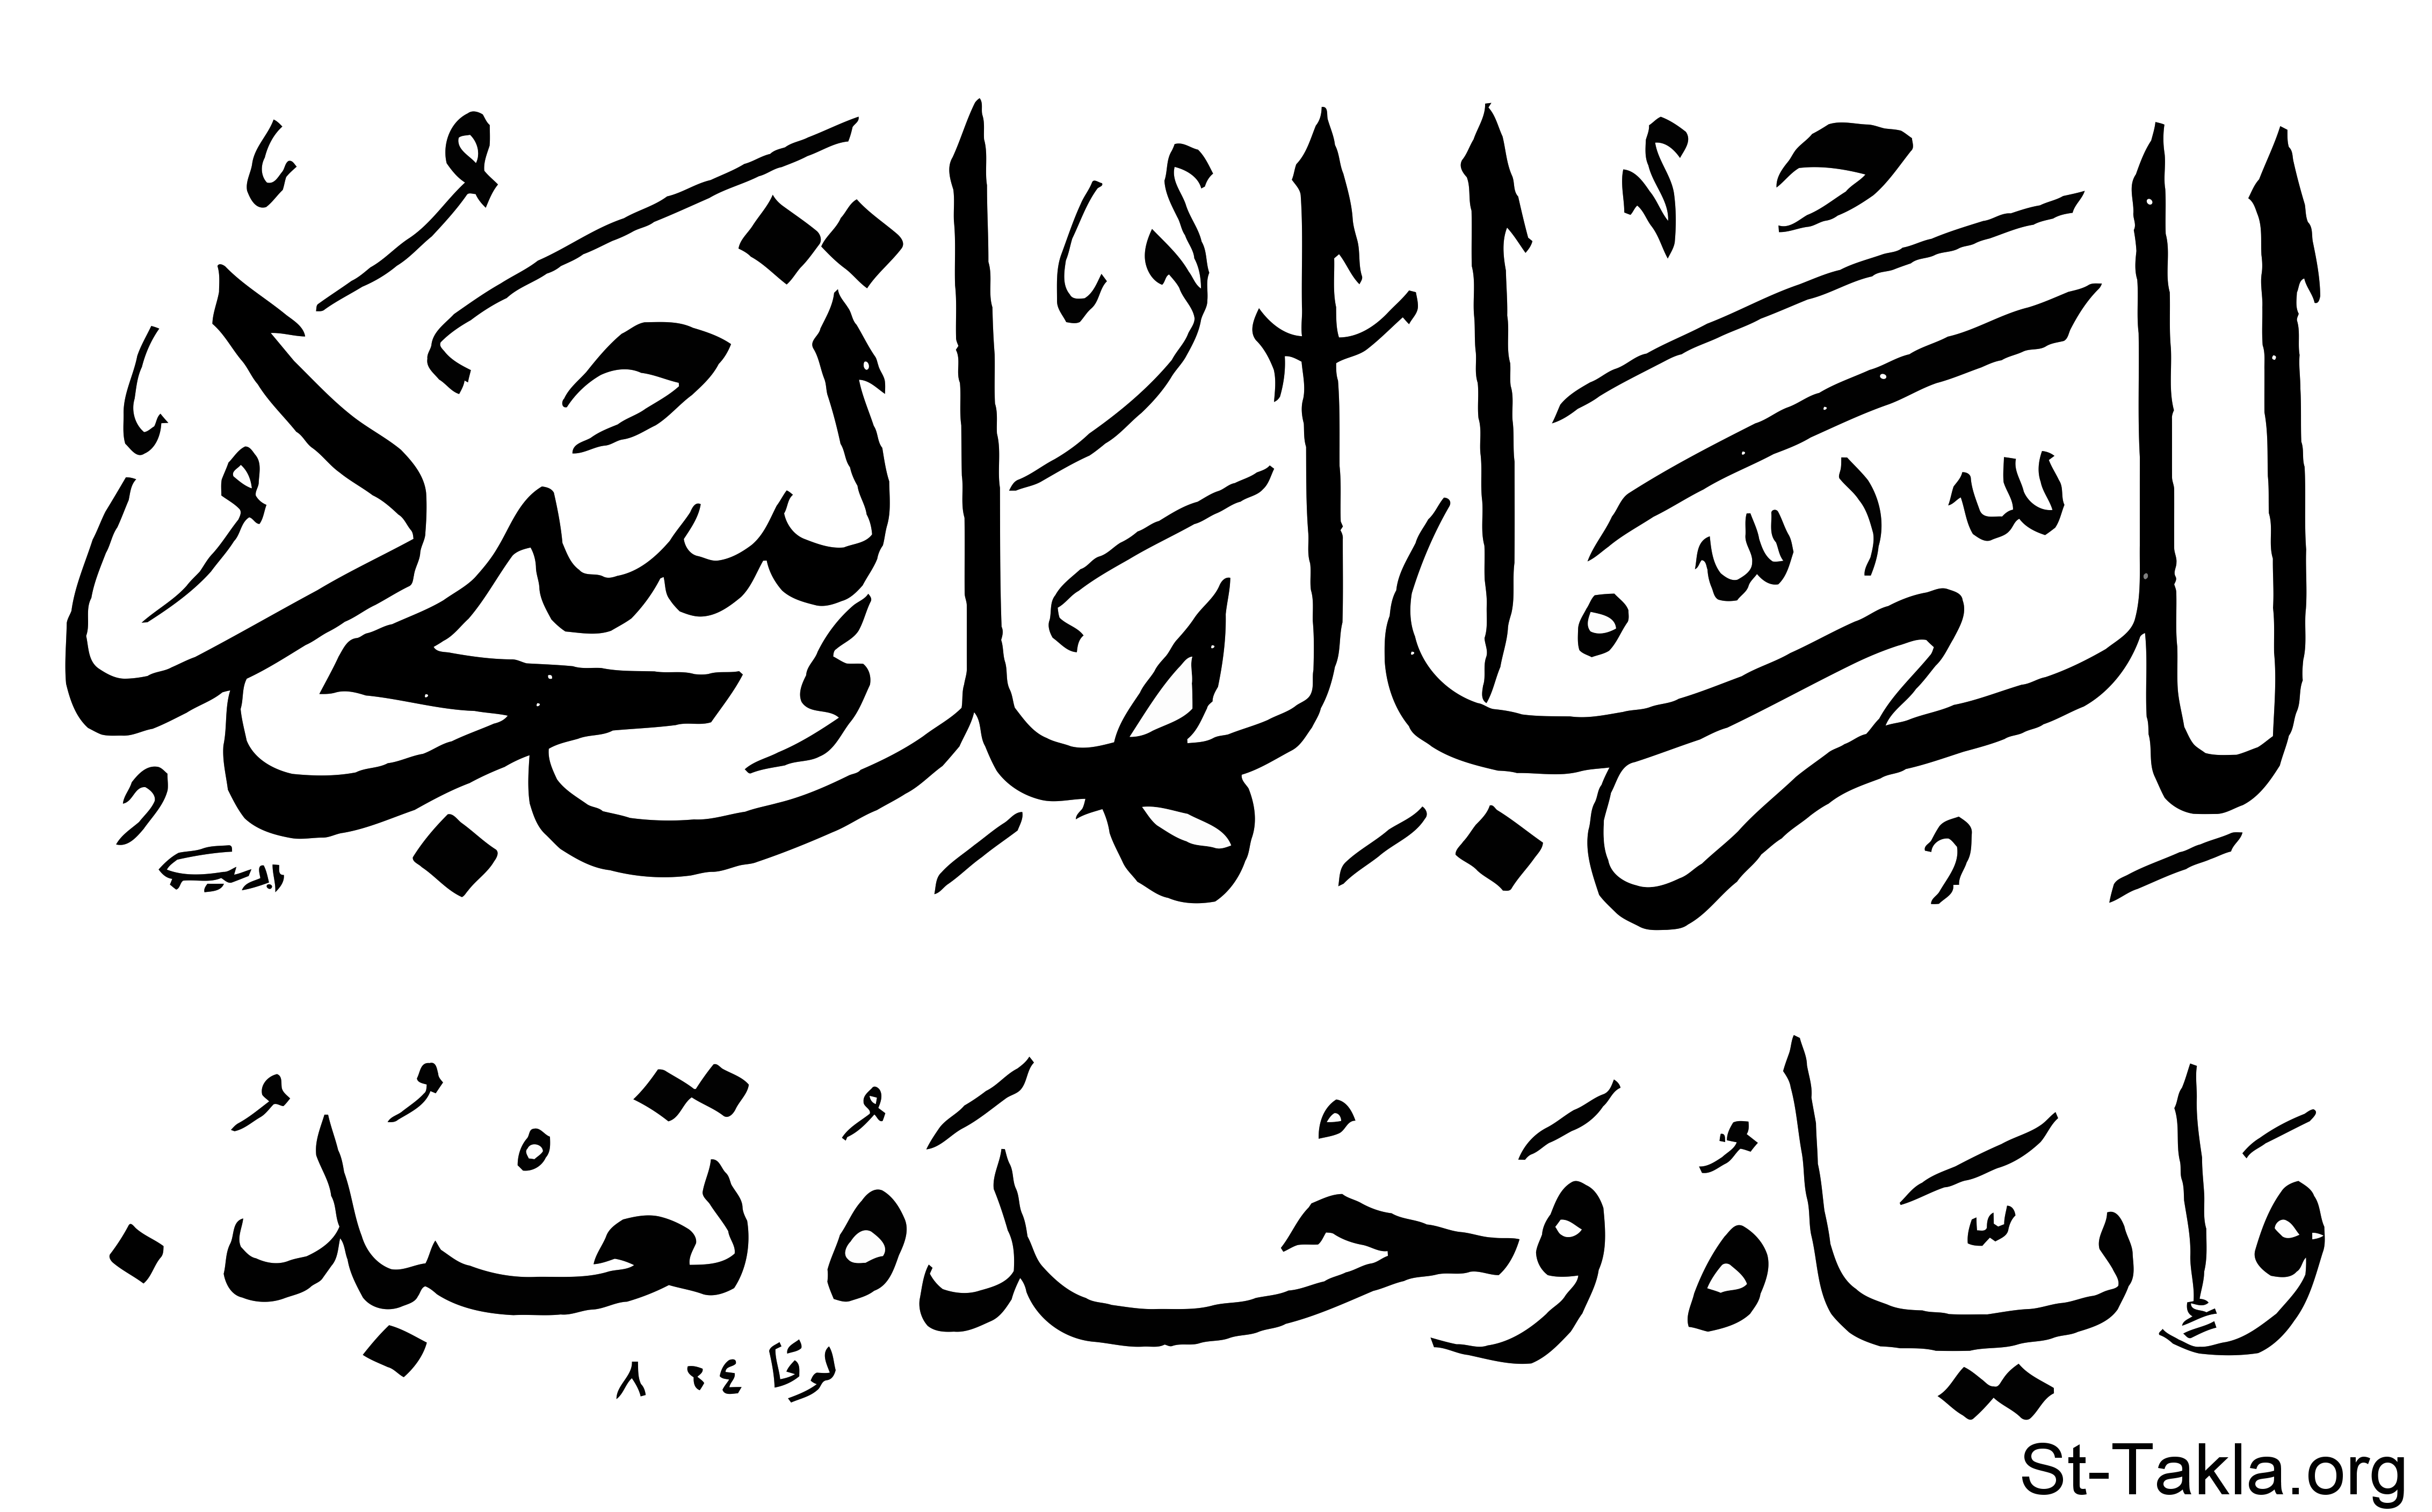 للرب إلهك تسجد
وَإِيَّاهُ وَحْدَهُ تَعْبُدُ
لوقا ٤ : ٨
St-Takla.org